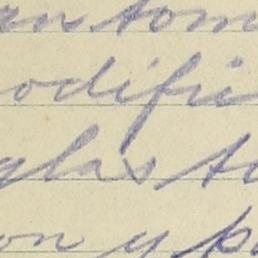 an tom
odifi
glas to
on y pa